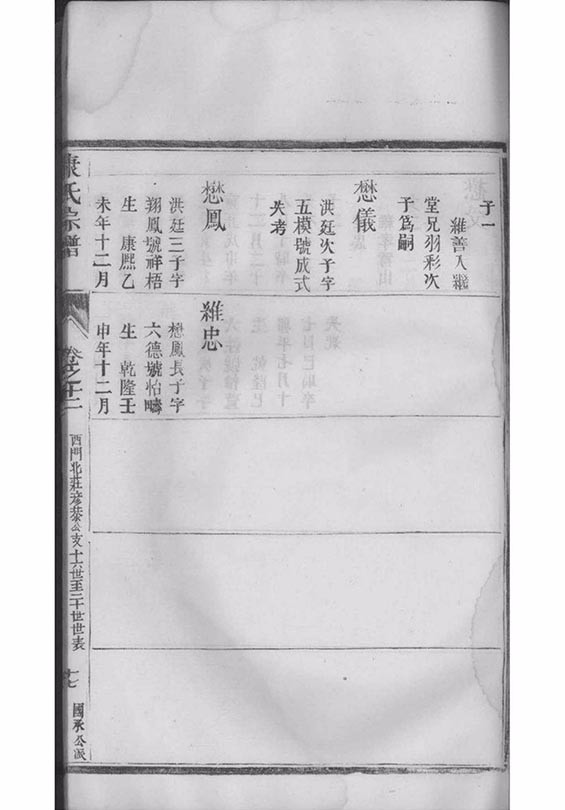 子一
維善入繼
堂兄羽彩次
子爲嗣
懋儀
洪廷次子字
五模號成式
失考
懋鳳
洪廷三子字
翔鳳號祥梧
生 康熈乙
未年十二月
維忠
懋鳳長子字
六德號怡疇
生 乾隆壬
申年十二月
康氏宗譜
卷之
西門北莊
公支十六世至二十世世表
十七
國承公派